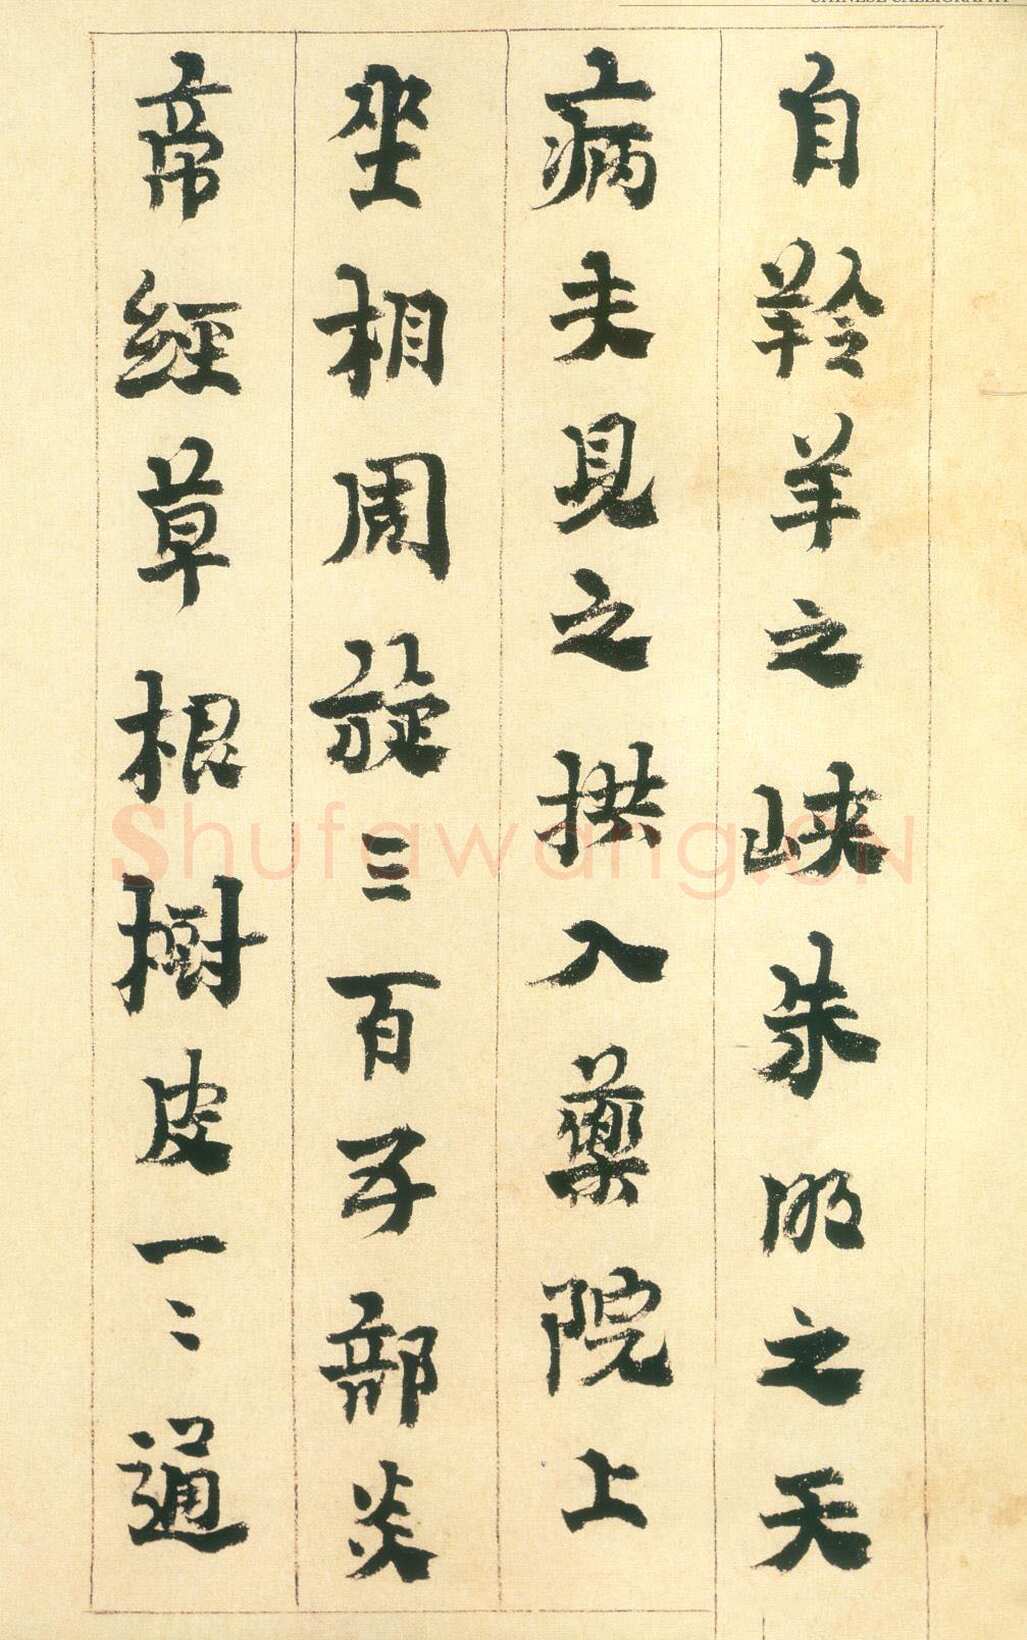 CHINESE CALLIGRAPHY
自羚羊之峽朱明之天
病夫見之拱入藥院上
坐相周旋三百五部炎
帝經草根樹皮一〻通
Shufawang.CN